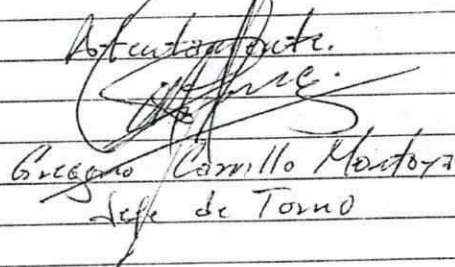 Atentamente.
Gregorio Carrillo Montoya
Jefe de Torno